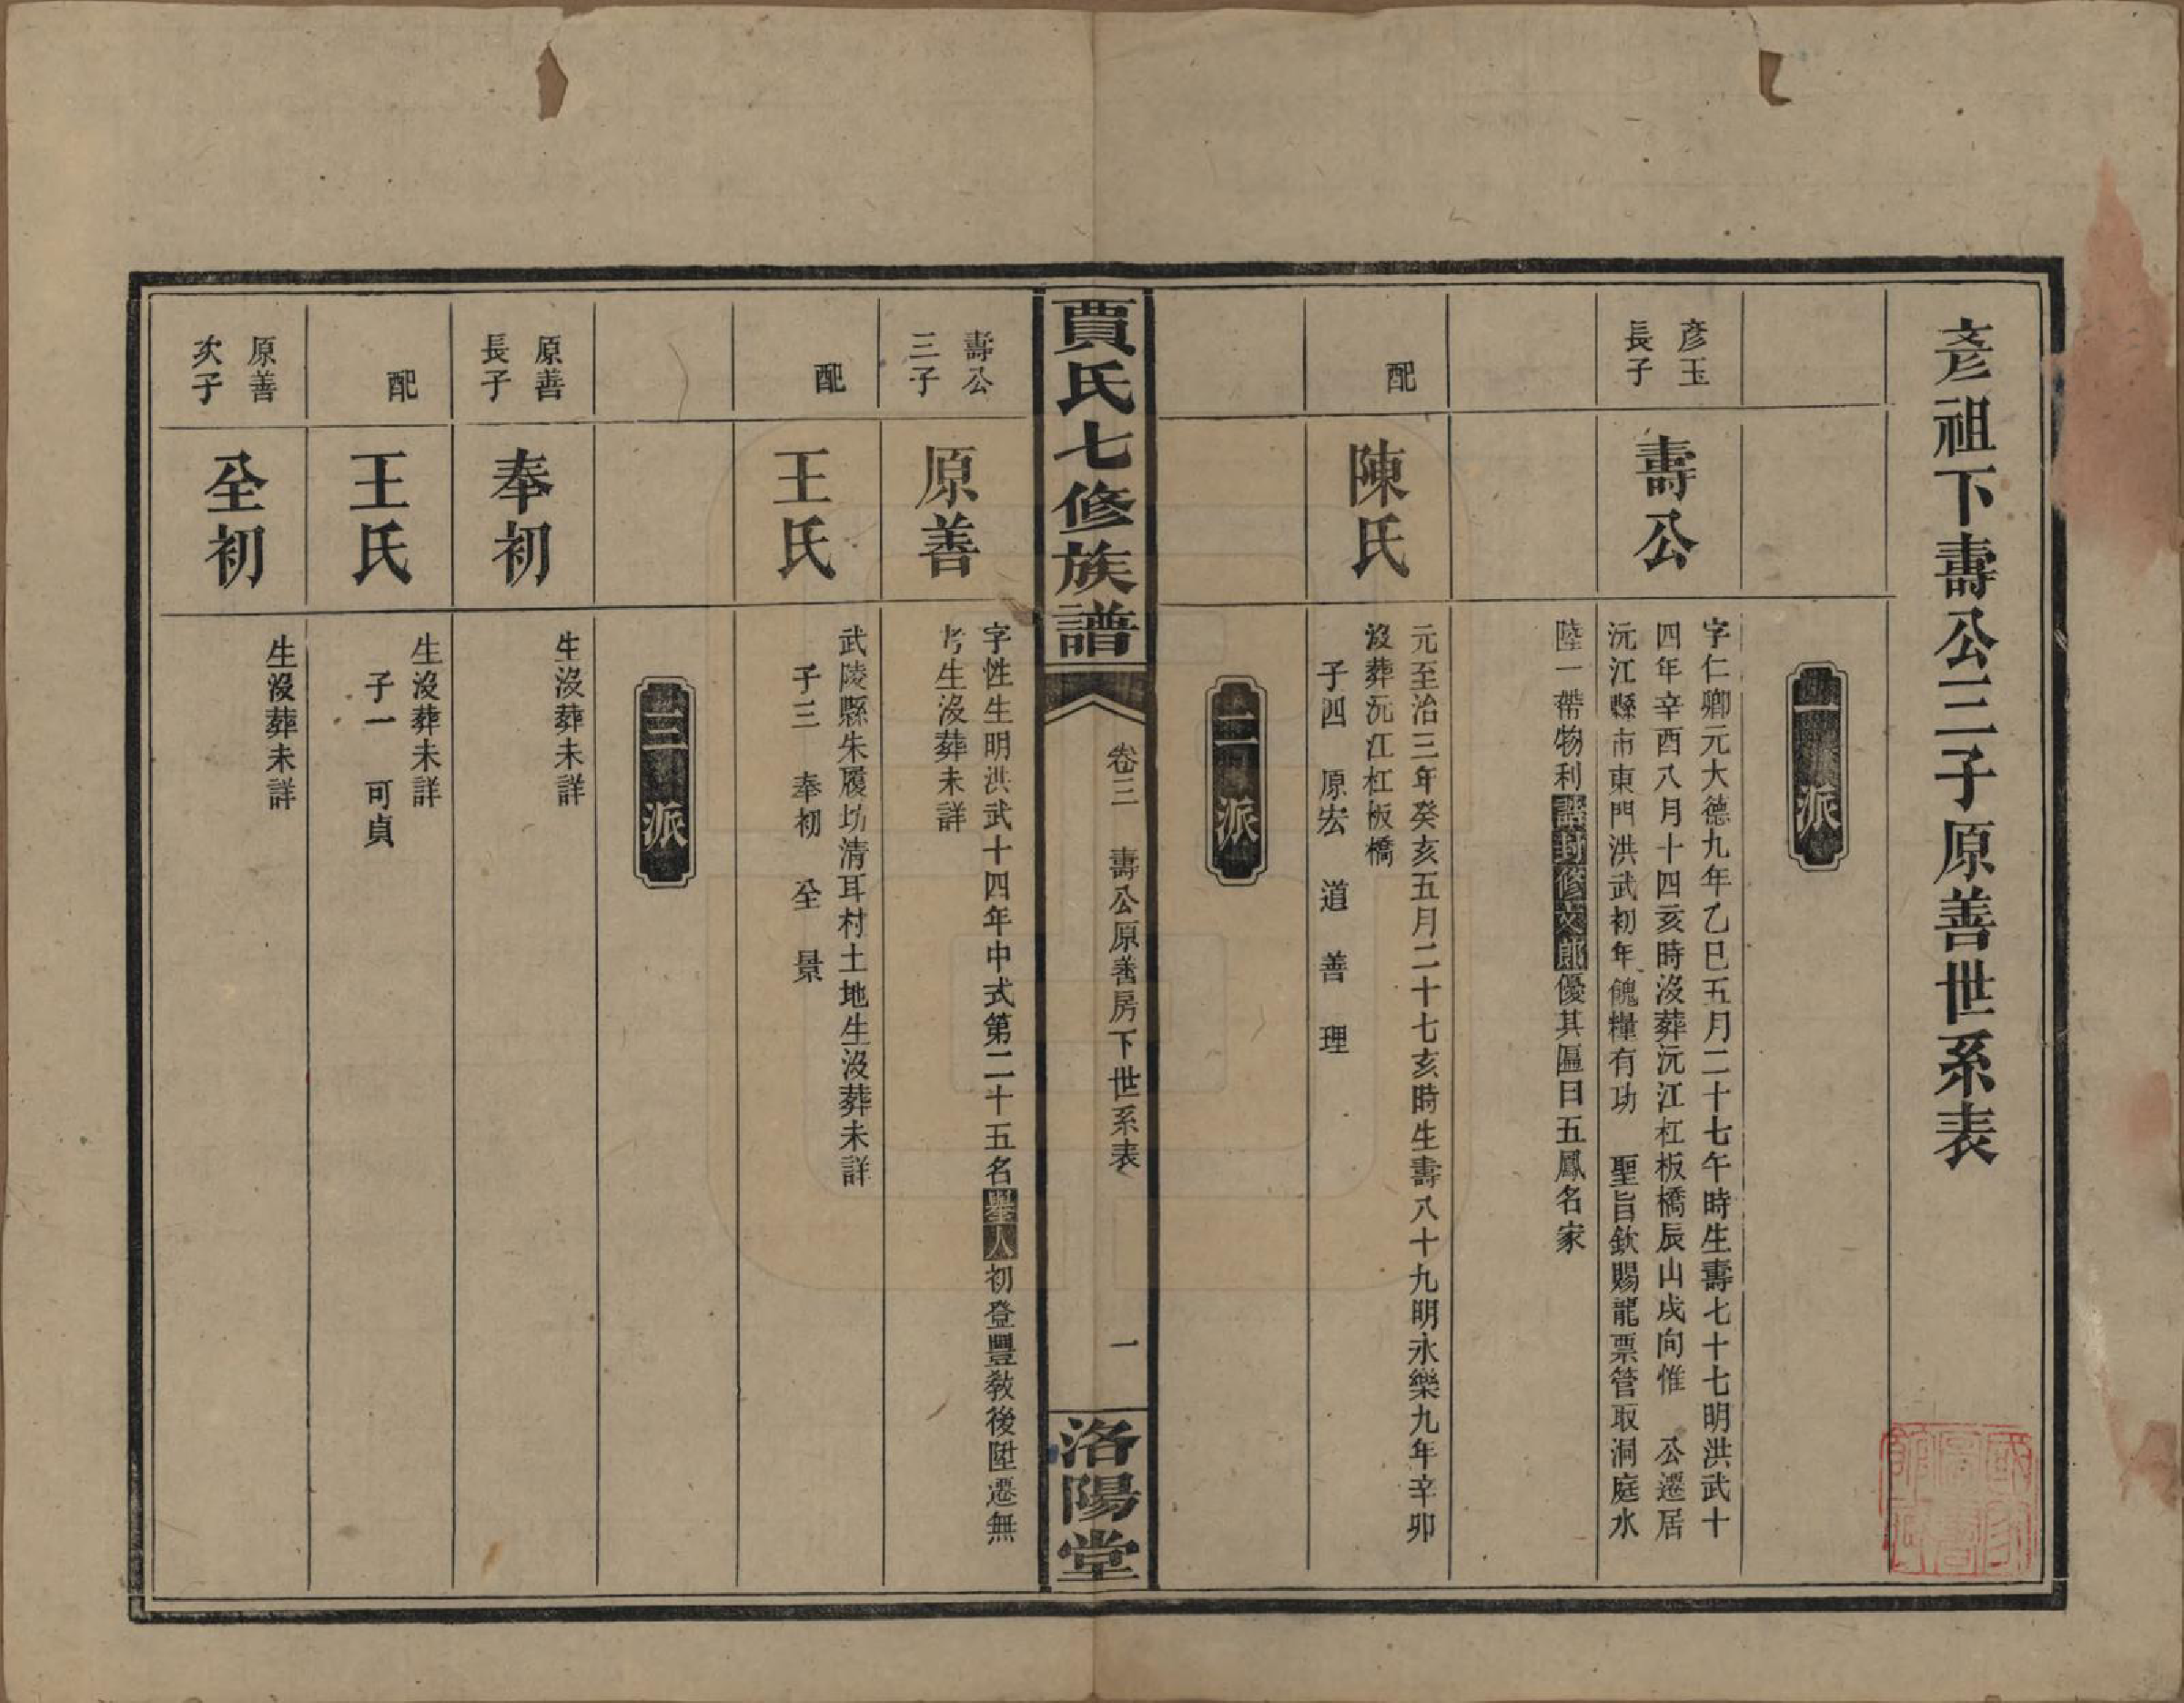 彥祖下壽公三子原善世系表
一派
彥玉
長子
壽公
字仁卿元大德九年乙巳五月二十七午時生壽七十七明洪武十
四年辛酉八月十四亥時沒葬沅江杠板橋辰山戌向惟　公遷居
沅江縣市東門洪武初年餽糧有功　聖旨欽賜龍票管取洞庭水
陸一帶物利誥封修文郎優其匾曰五鳳名家
配
陳氏
元至治三年癸亥五月二十七亥時生壽八十九明永樂九年辛卯
沒葬沅江杠板橋
子四　原宏　道　善　理
二派
賈氏七修族譜
卷三　壽公原善房下世系表
一
洛陽堂
壽公
三子
原善
字性生明洪武十四年中式第二十五名舉人初登豐教後陞遷無
考生沒葬未詳
配
王氏
武陵縣朱履坊清耳村土地生沒葬未詳
子三　奉初　全　景
三派
原善
長子
奉初
生沒葬未詳
配
王氏
生沒葬未詳
子一　可貞
原善
次子
全初
生沒葬未詳